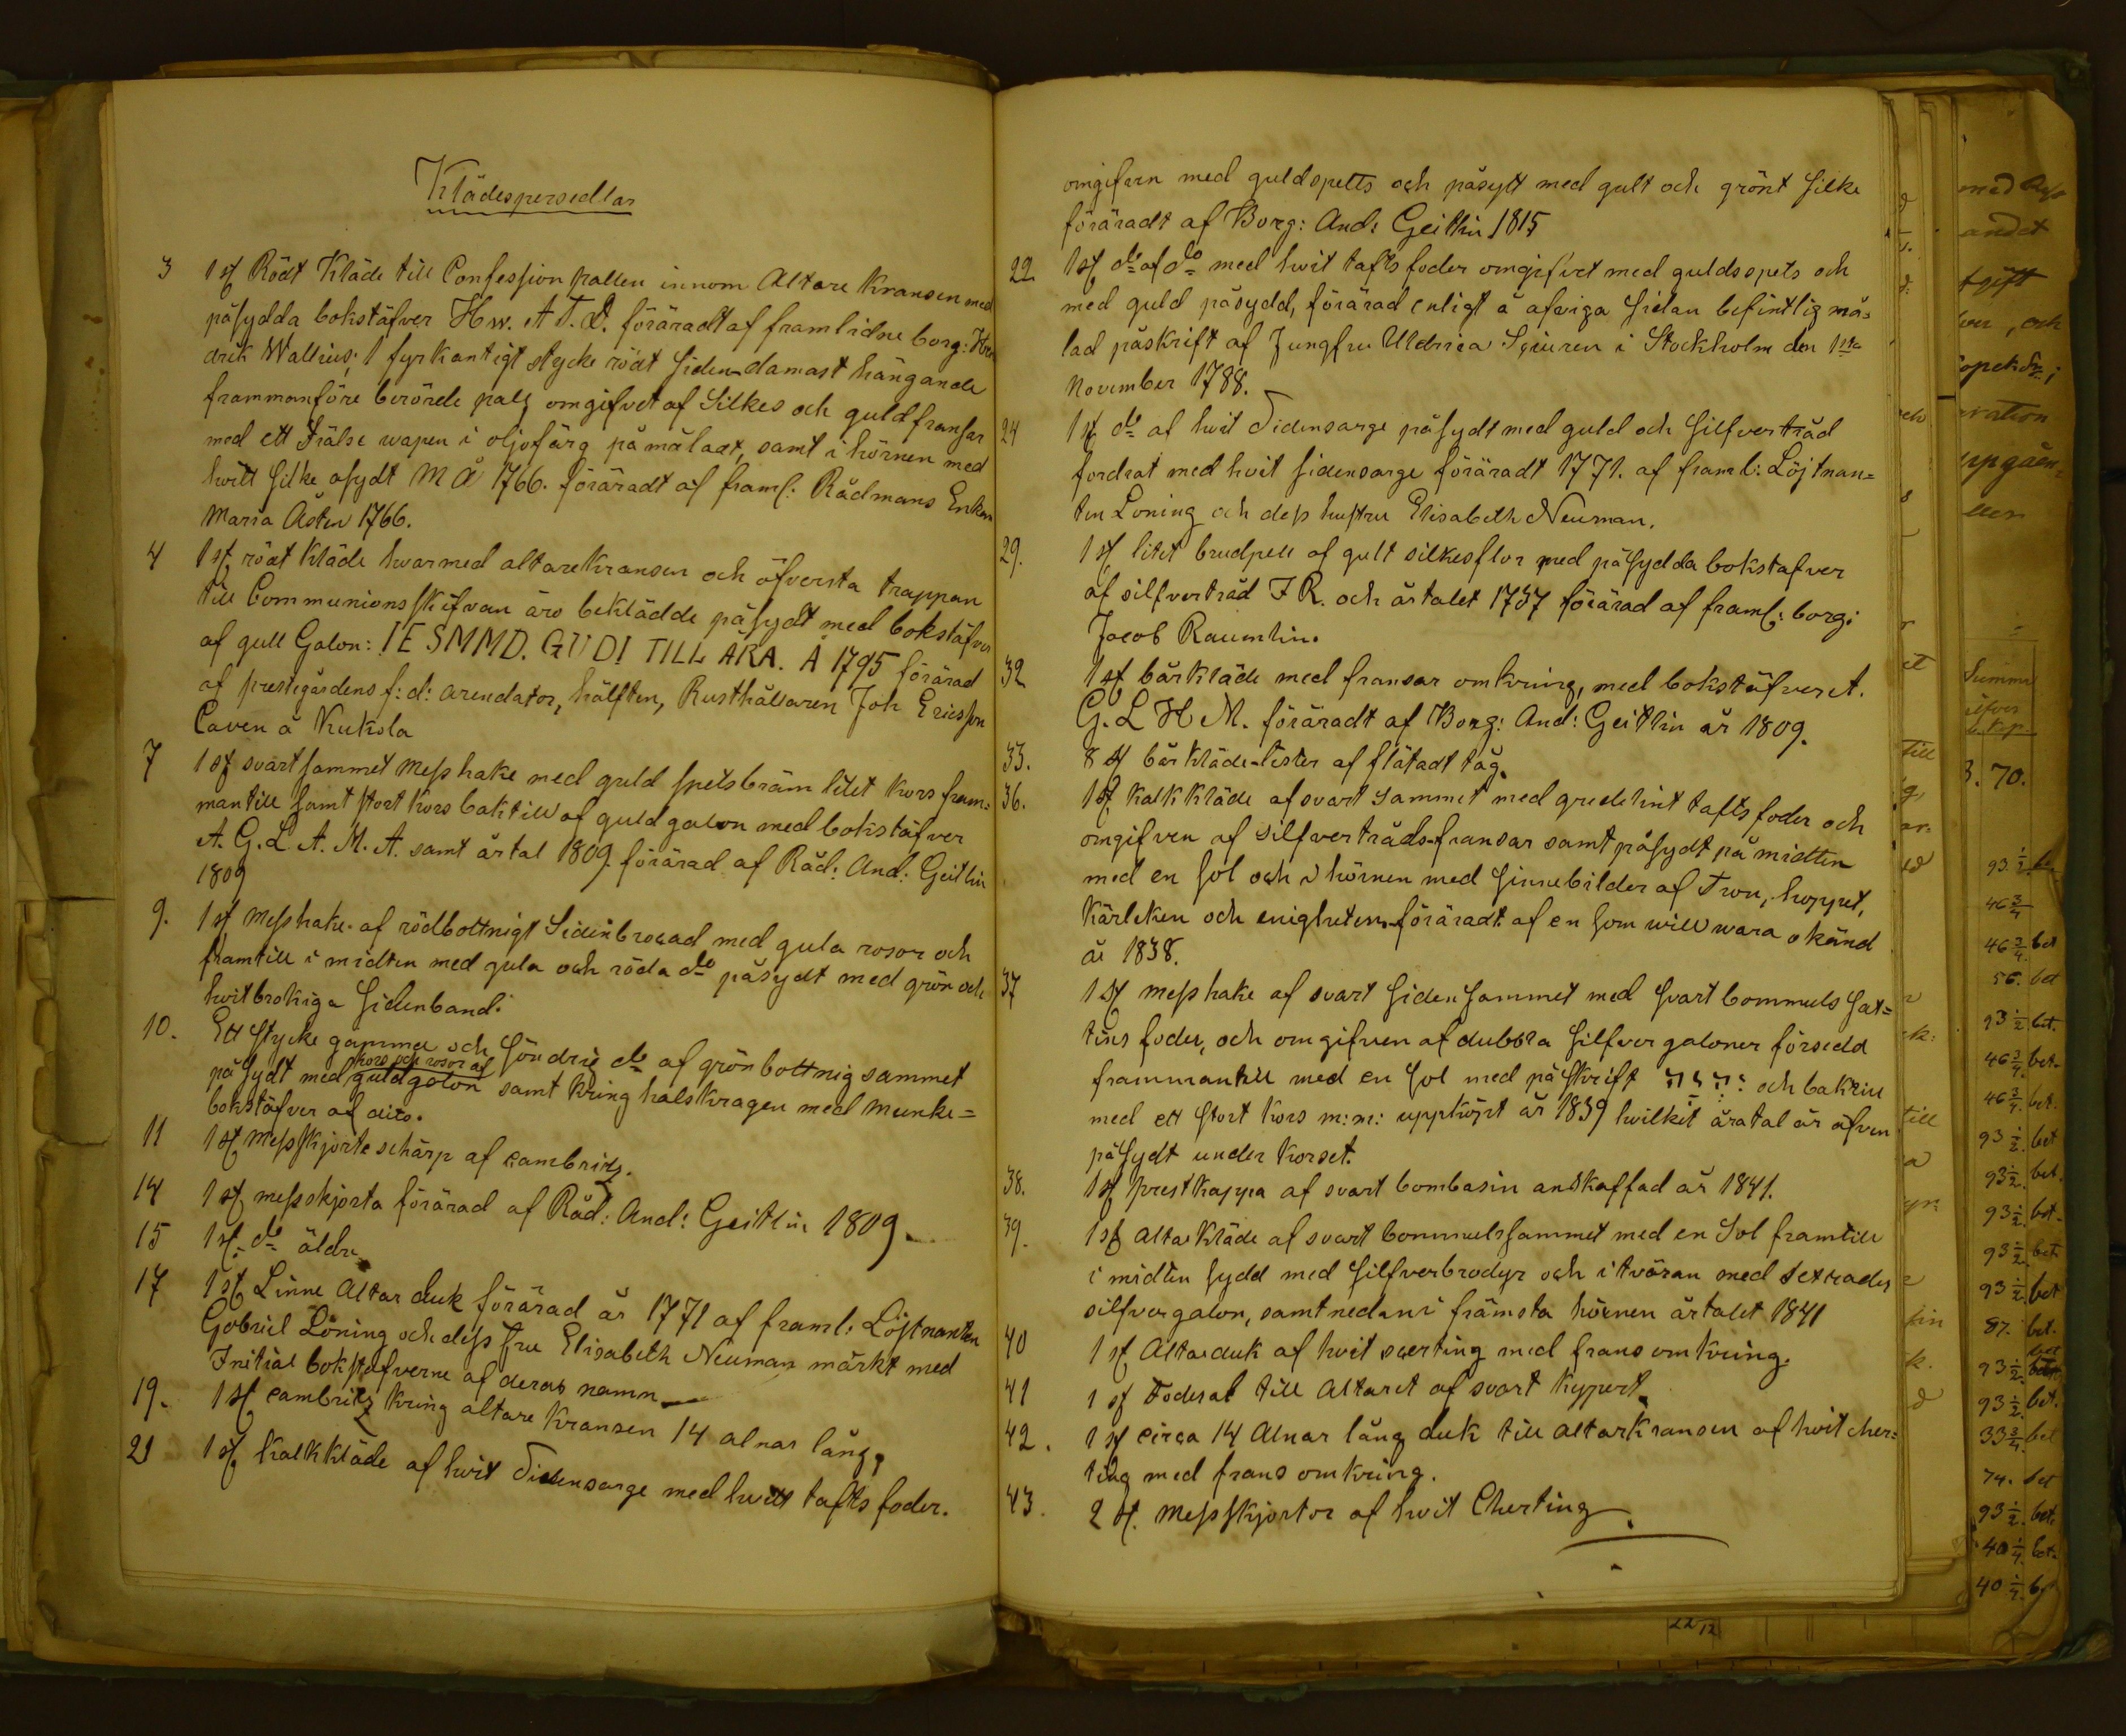 Klädespersedlar
3 1 st Rödt Kläde till Confession pallen innom Altare Kransen med
påsydda bokstäfver H w. A T. D. föräradt af framlidne borg: Hen
drik Wallius; 1 fyrkantigt stycke rödt siden damast hängande
frammanföre berörde pall omgifvet af Silkes och guld fransar
med ett Frälse wapen i oljofärg påmåladt, samt i hörnen med
hvitt silke asydt M Å 1766. föräradt af framl. Rådmans Enkan
Maria Åsten 1766.
4 1 st rödt Kläde hvarmed altareKransen och öfversta trappan
till Communionsskifvan äro beklädde påsydt med bokstäfver
af gull Galon: I E S M M D. GUDI TILL ÄRA. Å 1795 förärad
af prestegårdens f: d: arendator, hälften, Rusthållaren Joh Ericsson
Caven å Kukola
7 1 st svart sammet Messhake med guld spetsbräm litet kors fram-
mantill samt stort kors baktill af guldgalon med bokstäfver
A. G. L. A. M. A. samt årtal 1809 förärad af Råd: And: Geitlin
1809
9. 1 st Messhake af rödbottnigt Sidenbrocad med gula rosor och
framtill i midten med gula och röda do påsydt med grön och
hvitbrokiga sidenband.
10. Ett stycke gammal och söndrig do af grönbottnig sammet
kors och rosor af
påsydt med guldgalon samt kring halskragen med munke=
bokstäfver af dito.
11 1 st Messskjorte schärp af cambritz.
14 1 st messskjorta förärad af Råd: And: Geitlin 1809.
15 1 st. do äldre
17 1 st Linne Altar duk förärad år 1771 af framl: Löjtnanten
Gabriel Löning och dess fru Elisabeth Neuman märkt med
Initial bokstäfverne af deras namn
19. 1 st cambritz kring altare Kransen 14 alnar lång,
21 1 st Kalkkläde af hvit Sidensarge med hvitt tafts foder.
omgifven med guldspetts och påsytt med gult och grönt silke
föräradt af Borg: And: Geitlin 1815
22 1 st do af do med hvit tafts foder omgifvet med guldsspets och
med guld påsydd, förärad enligt å afviga sidan befintlig må=
lad påskrift af Jungfru Uldrica i Stockholm den 1sta
November 1788.
24 1 st do af hvit Sidensarge påsydt med guld och silfvertråd
fordrat med hvit sidensarge föräradt 1771. af framl: Löjtnan=
ten Loning och dess hustru Elisabeth Neuman.
29. 1 st litet brudpell af gult silkesflor med påsydda bokstafver
af silfvertråd J R. och årtalet 1737 förärad af framl: borg:
Jacob Raumlin.
32 1 st bårkläde med fransar omkring, med bokstäfver A.
G. L H M. föräradt af Borg: And: Geitlin år 1809.
33. 8 st bårkläde-lister af flätadt tåg.
36. 1 st Kalk kläde af svart sammet med gredelint tafts foder och
omgifven af silfvertråds-fransar samt påsydt på midten
med en sol och i hörnen med sinnebilder af Tron, hoppet,
Kärleken och enigheten föräradt af en som will wara okänd
år 1838.
37 1 st messhake af svart siden sammet med svart bommuls sat=
tins foder, och omgifven af dubbla silfver galoner försedd
frammantill med en sol med påskrift יהוה: och baktill
med ett stort kors m: m: uppköpt år 1839 hvilket åratal är äfven
påsydt under korset.
38. 1 st prestkappa af svart bombasin anskaffad år 1841.
39. 1 st Altarkläde af svart bommulssammet med en Sol framtill
i midten sydd med silfverbrodyr och i tväran med
silfvergalon, samt nedan i främsta hörnen årtalet 1841
40 1 st Altarduk af hvit scerting med frans omkring.
41 1 st Foderal till Altaret af svart Kypert
42. 1 st circa 14 Alnar lång duk till altarKransen af hvit cher=
ting med frans omkring.
43. 2 st. Messskjortor af hvit Cherting
andet
och
ration
Summa
till
3. 70.
93 1/2
46 3/4
46 3/4. bet
56. bet
93 1/2. bet.
46 3/4. bet.
46 3/4. bet.
till
93 1/2. bet
93 1/2. bet.
93 1/2. bet.
93 1/2. bet
93 1/2. bet
87. bet.
93 1/2.
93 1/2. bet.
33 3/4. bet
74. bet
93 1/2. bet.
40 1/4. bet.
40 1/4.